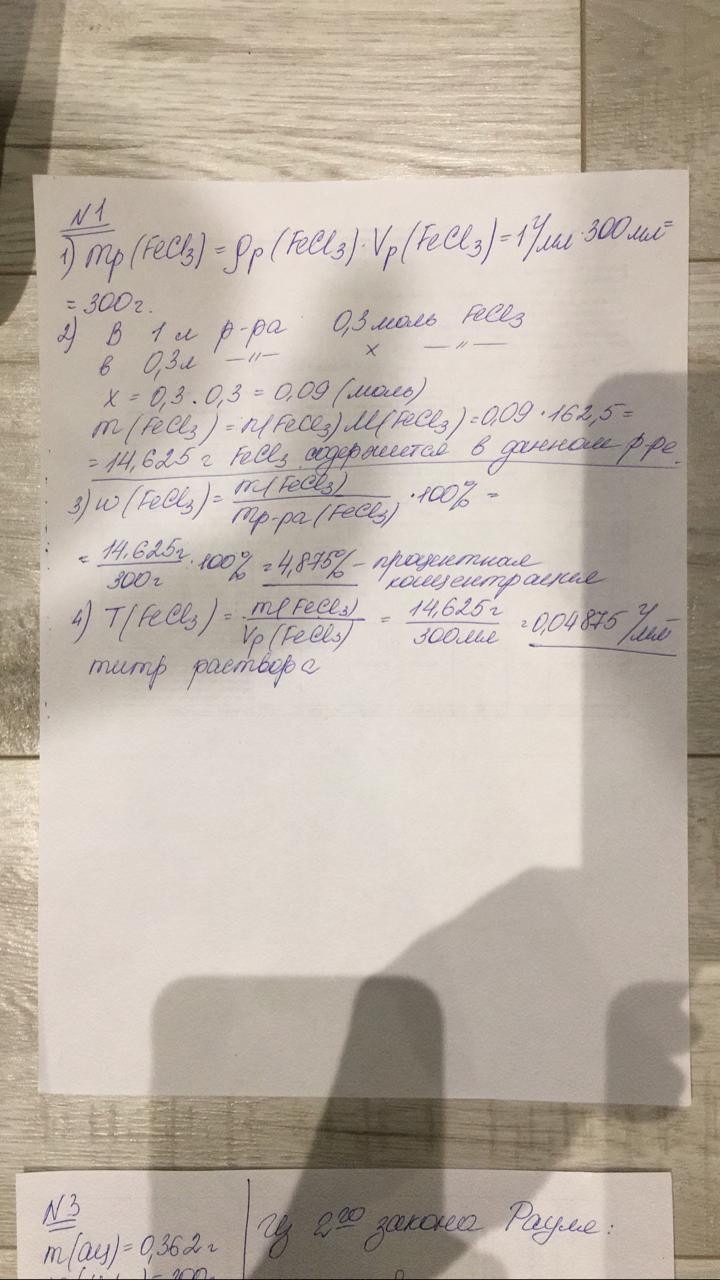 N1
1) mр (FeCl3) = ρр (FeCl3) · Vр (FeCl3) = 1 г/мл · 300 мл =
= 300 г.
2) В 1 л р-ра 0,3 моль FeCl3
в 0,3л —"— x —"—
x = 0,3 . 0,3 = 0,09 (моль)
m (FeCl3) = n(FeCl3) M(FeCl3) = 0,09 · 162,5 =
= 14,625 г FeCl3 содержится в данном р-ре.
3) w (FeCl3) = m(FeCl3) / mр-ра (FeCl3) · 100% =
= 14,625г / 300г · 100% = 4,875% - процентная
концентрация
4) T (FeCl3) = m(FeCl3) / Vр (FeCl3) = 14,625г / 300мл = 0,04875 г/мл -
титр раствора
N3
m(ац) = 0,362 г
Из 2го закона Рауля: